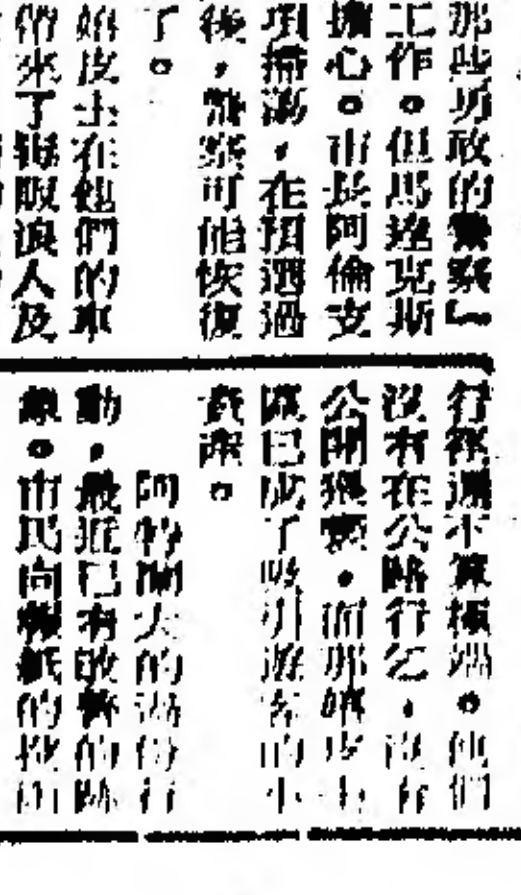 那些勇敢的警察』
工作。但馬達克斯
擔心。市長阿倫支
項掃蕩,在預選過
後,警察可能恢復
了。
嬉皮士在他們的車
們來了
浪人及
行徑還不算極端。他們
沒有在公路行乞,沒有
公開猥褻。而那嬉皮士
區已成了吸引遊客的
資產。
阿特蘭大的掃蕩行
動,最近已有
的跡
象。市民向報紙的投